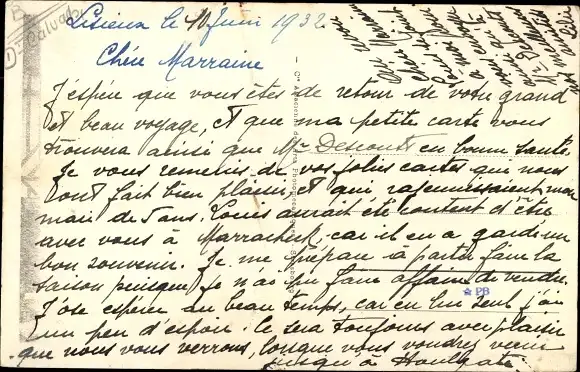 Lisieux le 10 Juin 1932
Chère Marraine
J'espère que vous êtes de retour de votre grand
et beau voyage, et que ma petite carte vous
trouvera ainsi que Mr Descourts en bonne santé.
Je vous remercie de vos jolies cartes qui nous
ont fait bien plaisir et qui rajeunissaient mon
mari de 5 ans. Louis aurait été content d'être
avec vous à Marrackech car il en a gardé un
bon souvenir. Je me prépare à partir faire la
saison puisque je n'ai pu faire affaire de vendre.
J'ose espérer du beau temps, car en lui seul j'ai
un peu d'espoir. Ce sera toujours avec plaisir
que nous vous verrons, lorsque vous voudrez venir
jusqu'à Houlgate.
PB